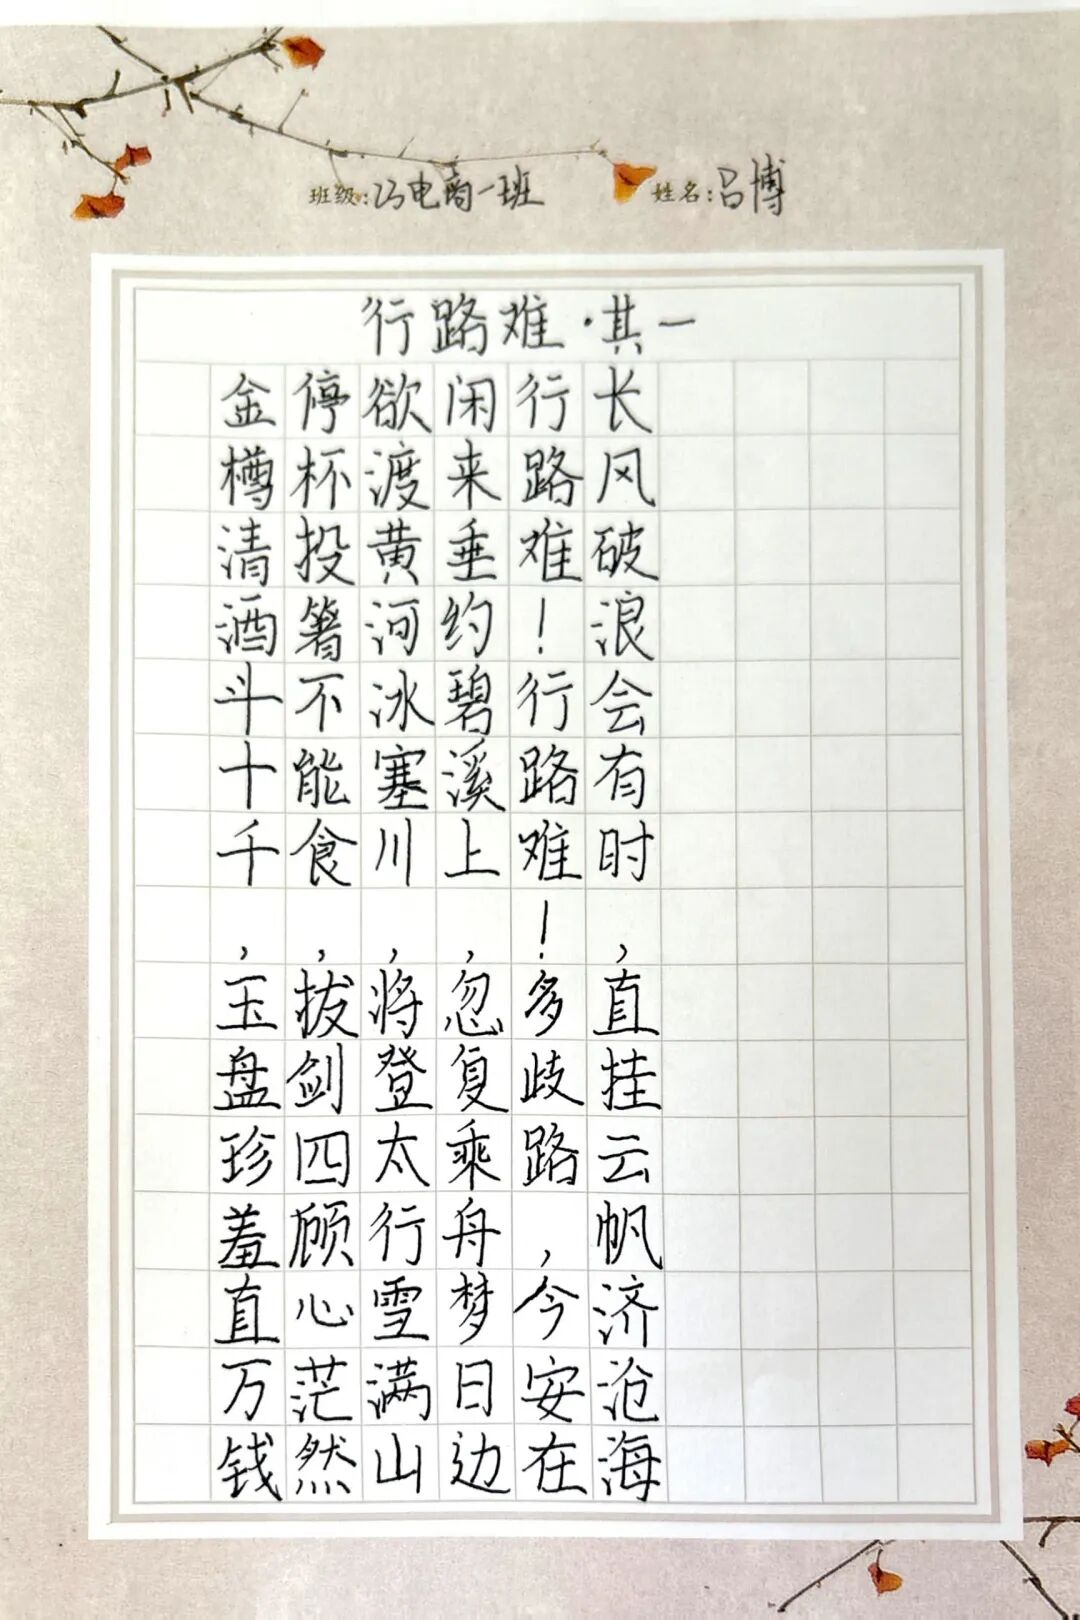 班级:23电商一班 姓名:吕博
行路难·其一
金樽清酒斗十千,玉盘珍羞直万钱
停杯投箸不能食,拔剑四顾心茫然
欲渡黄河冰塞川,将登太行雪满山
闲来垂钓碧溪上,忽复乘舟梦日边
行路难!行路难!多歧路,今安在
长风破浪会有时,直挂云帆济沧海